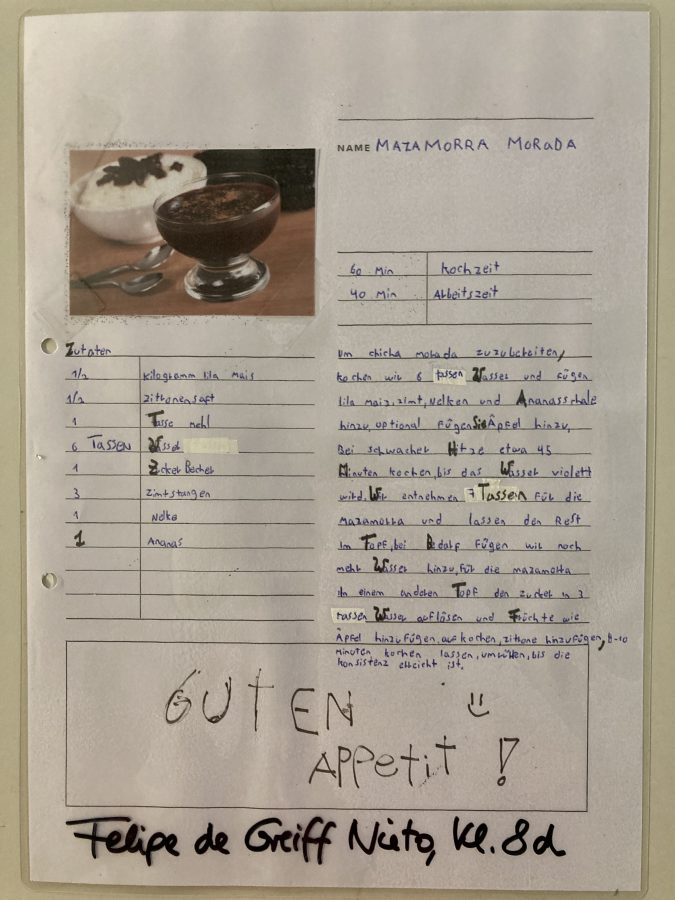 NAME MAZAMORRA MORADA
60 Min Kochzeit
40 Min Arbeitszeit
Zutaten
1/2 Kilogramm lila Mais
1/2 Zitronensaft
1 Tasse mehl
6 TASSEN Wasser
1 Zucker Becher
3 Zimtstangen
1 Nelke
1 Ananas
Um chicha morada zuzubereiten,
kochen wir 6 tassen Wasser und fügen
lila Mais, zimt, Nelken und Ananasschale
hinzu, optional Fügen Sie Äpfel hinzu,
Bei schwacher Hitze etwa 45
Minuten kochen, bis das Wasser violett
wird. Wir entnehmen 7 Tassen Für die
Mazamorra und lassen den Rest
Im Topf, bei Bedarf Fügen wir noch
mehr Wasser hinzu, Für die mazamorra
In einem anderen Topf den zucker in 3
tassen Wasser auflösen und Früchte wie
Äpfel hinzufügen, aufkochen, zitrone hinzufügen, 8-10
Minuten kochen lassen, umrühren, bis die
Konsistenz erreicht ist.
GUTEN
APPetit !
Felipe de Greiff Nieto, Kl. 8d